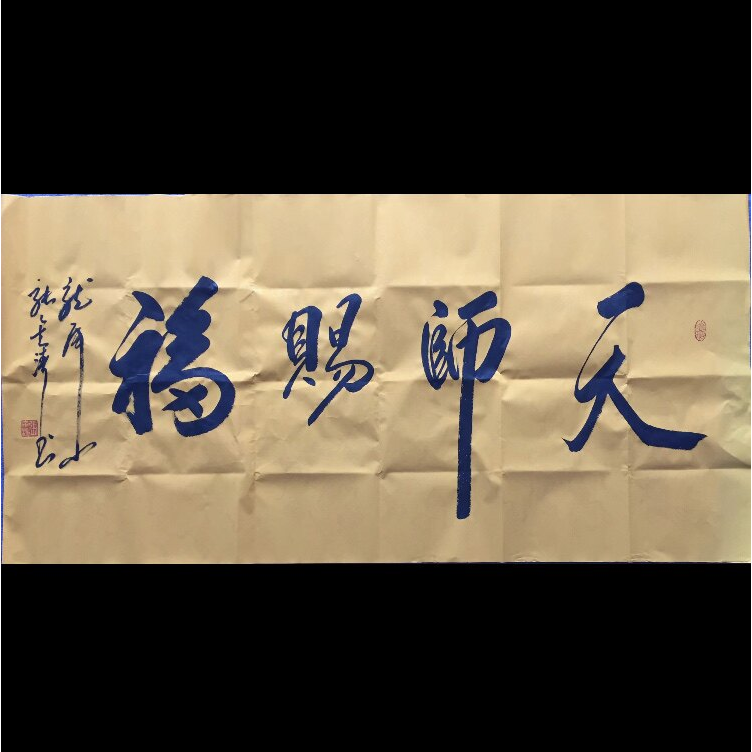 天師賜福
龍虎山
張金濤書